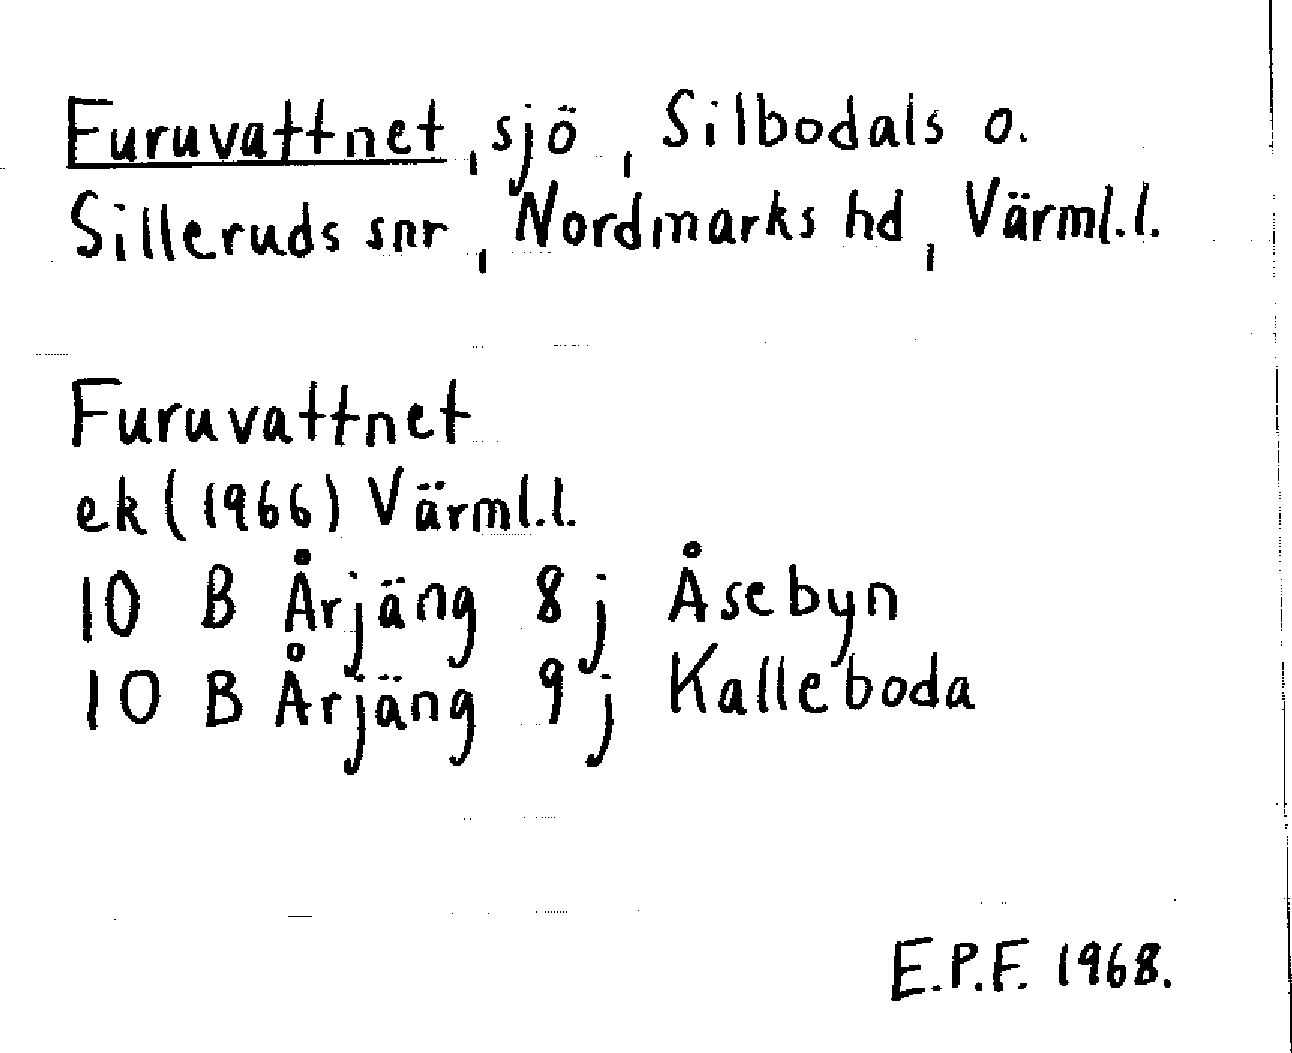 Furuvattnet, sjö, Silbodals o.
Silleruds snr, Nordmarks hd, Värml.l.
Furuvattnet
ek (1966) Värml.l.
10 B Årjäng 8j Åsebyn
10 B Årjäng 9j Kalleboda
E.P.F. 1968.